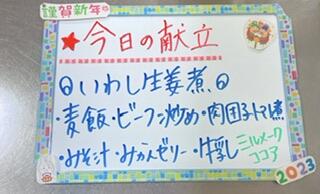 謹賀新年
★今日の献立
◎いわし生姜煮◎
麦飯・ビーフン炒め・肉団子トマト煮
・みそ汁・みかんゼリー・牛乳 ミルメーク
ココア
2023